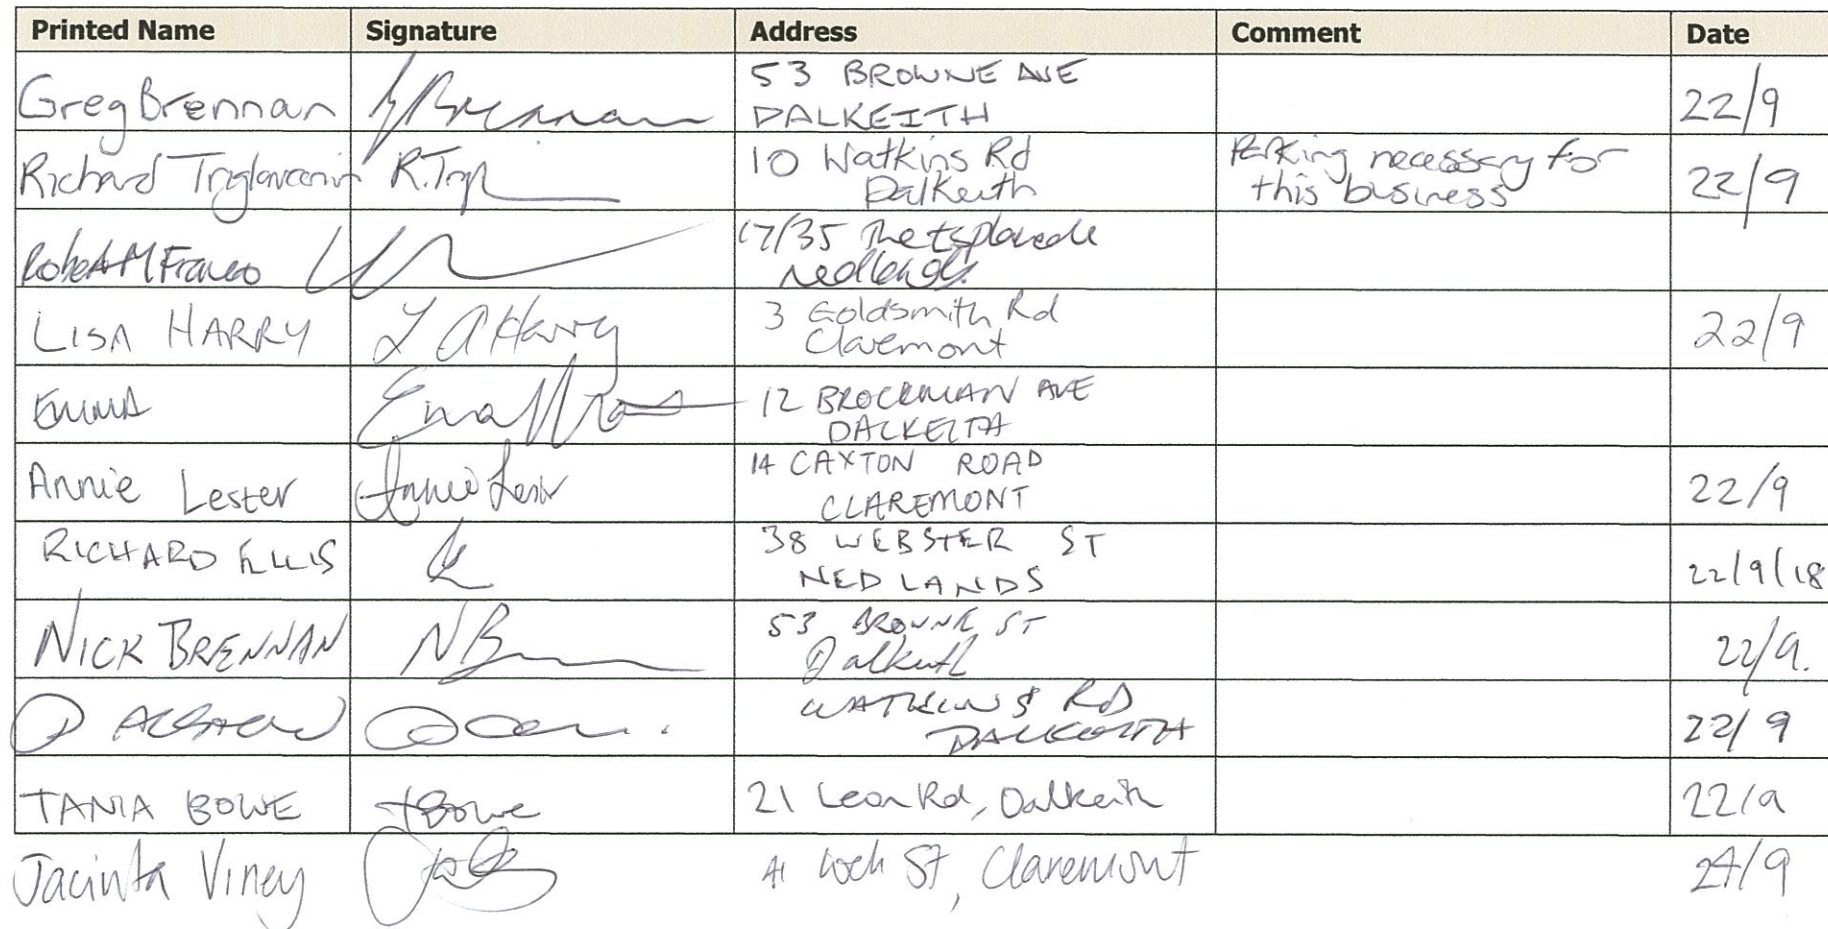 Printed Name Signature Address Comment Date
Greg Brennan G Brennan 53 BROWNE AVE
DALKEITH 22/9
Richard R.Trgl 10 Watkins Rd
Dalkeith Parking necessary for
this business 22/9
Robert M Franco 17/35 The Esplanade
Nedlands
LISA HARRY L A Harry 3 Goldsmith Rd
Claremont 22/9
EMMA Emma 12 BROCKMAN AVE
DALKEITH
Annie Lester Annie Lester 14 CAXTON ROAD
CLAREMONT 22/9
RICHARD ELLIS 38 WEBSTER ST
NEDLANDS 22/9/18
NICK BRENNAN NB 53 BROWNE ST
Dalkeith 22/9.
WATKINS RD
DALKEITH 22/9
TANIA BOWE TBowe 21 Leon Rd, Dalkeith 22/9
Jacinta Viney 41 Loch St, Claremont 24/9